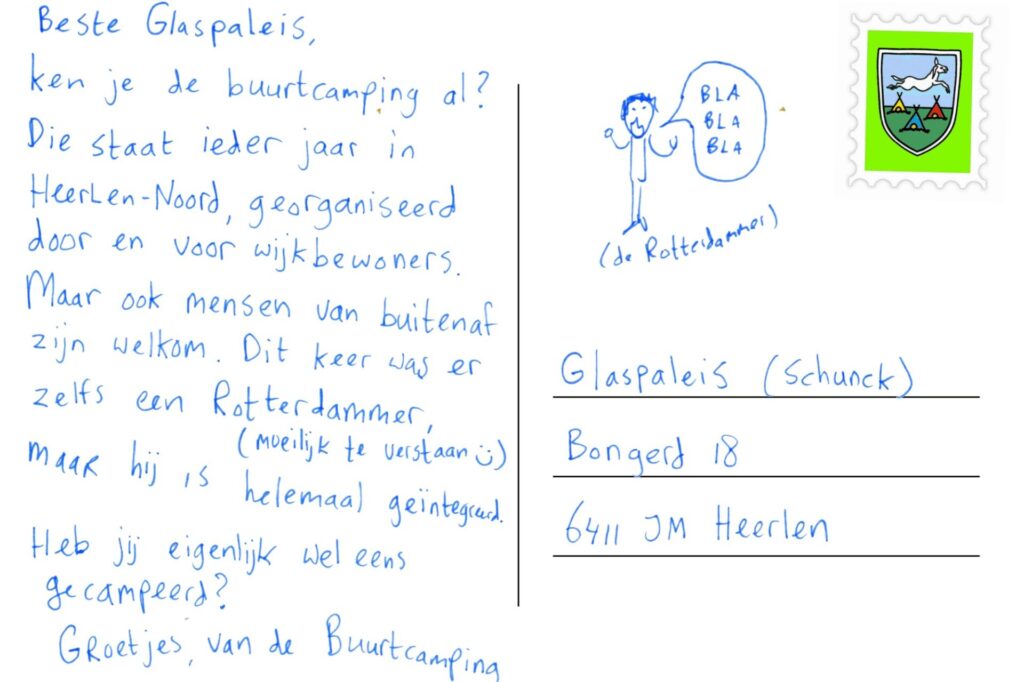 Beste Glaspaleis,
ken je de buurtcamping al?
Die staat ieder jaar in
Heerlen-Noord, georganiseerd
door en voor wijkbewoners.
Maar ook mensen van buitenaf
zijn welkom. Dit keer was er
zelfs een Rotterdammer,
(moeilijk te verstaan☺)
maar hij is helemaal geïntegreerd.
Heb jij eigenlijk wel eens
gecampeerd?
Groetjes, van de Buurtcamping
BLA
BLA
BLA
(de Rotterdammer)
Glaspaleis (Schunck)
Bongerd 18
6411 JM Heerlen